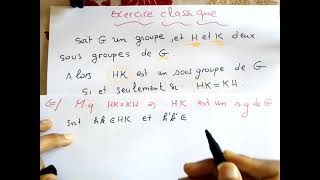 Exercice classique
soit G un groupe, et H et K deux
sous groupes de G.
Alors HK est un sous groupe de G
si et seulement si HK = KH.
⇐/ Mq HK=KH ⇒ HK est un s.g de G
soit hk ∈ HK et h'k' ∈